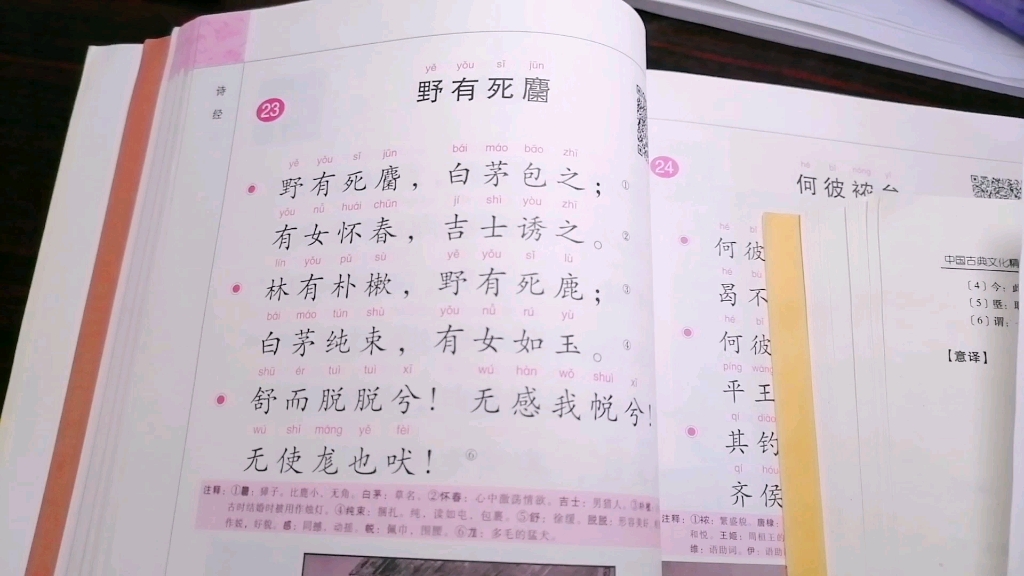 诗经
yě yǒu sǐ jūn
野有死麕
23
yě yǒu sǐ jūn bái máo bāo zhī
野有死麕，白茅包之；①
yǒu nǚ huái chūn jí shì yòu zhī
有女怀春，吉士诱之。②
lín yǒu pǔ sù yě yǒu sǐ lù
林有朴樕，野有死鹿；③
bái máo tún shù yǒu nǚ rú yù
白茅纯束，有女如玉。④
shū ér tuì tuì xī wú hàn wǒ shuì xī
舒而脱脱兮！无感我帨兮！
wú shǐ máng yě fèi
无使尨也吠！⑥
注释：①麕：獐子。比鹿小，无角。白茅：草名。②怀春：心中激荡情欲。吉士：男猎人。③朴樕
古时结婚时被用作烛灯。④纯束：捆扎。纯，读如屯，包裹。⑤舒：徐缓。脱脱：形容美好
作姣，好貌。感：同撼，动摇。帨：佩巾，围腰。⑥尨：多毛的猛犬。
24
何彼秾
何彼
曷不
何彼
平王
其钓
齐侯
注释：①秾：繁盛貌。唐棣
和悦。王姬：周桓王的
维：语助词。伊：语助
中国古典文化精
〔4〕今：
〔5〕既：
〔6〕谓：
【意译】